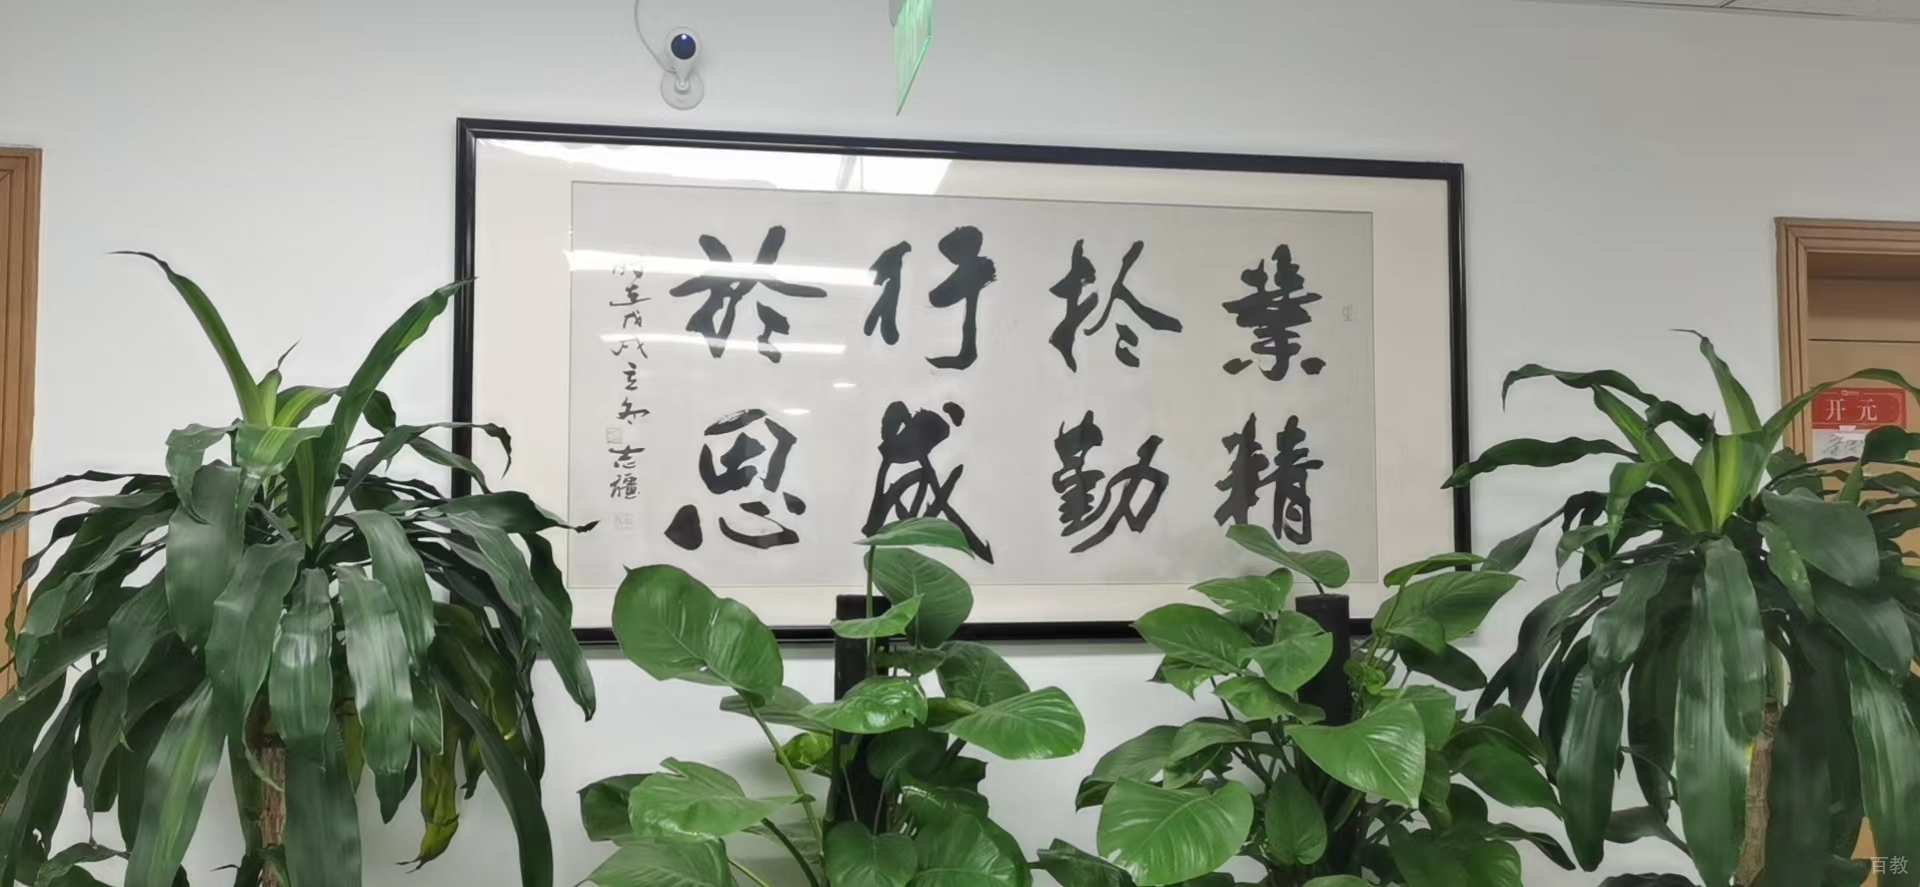 業精
於勤
行成
於思
時在戊戌立冬 志疆
开元
百教